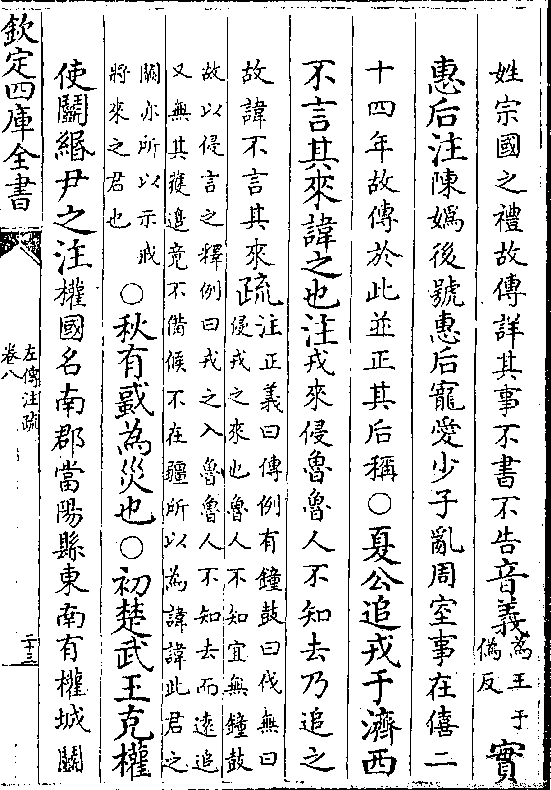 姓宗國之禮故傳詳其事不書不告音義為王于
偽反實
惠后注陳嬀後號惠后寵愛少子亂周室事在僖二
十四年故傳於此並正其后稱○夏公追戎于濟西
不言其來諱之也注戎來侵魯魯人不知去乃追之
故諱不言其來疏注正義曰傳例有鐘鼓曰伐無曰
侵戎之來也魯人不知宜無鐘鼓
故以侵言之釋例曰戎之入魯魯人不知去而遠追
又無其獲邉竟不備候不在疆所以為諱諱此君之
闕亦所以示戒
將來之君也○秋有䘌為災也○初楚武王克權
使鬭緡尹之注權國名南郡當陽縣東南有權城鬭
欽定四庫全書
左傳注疏
卷八
二十三